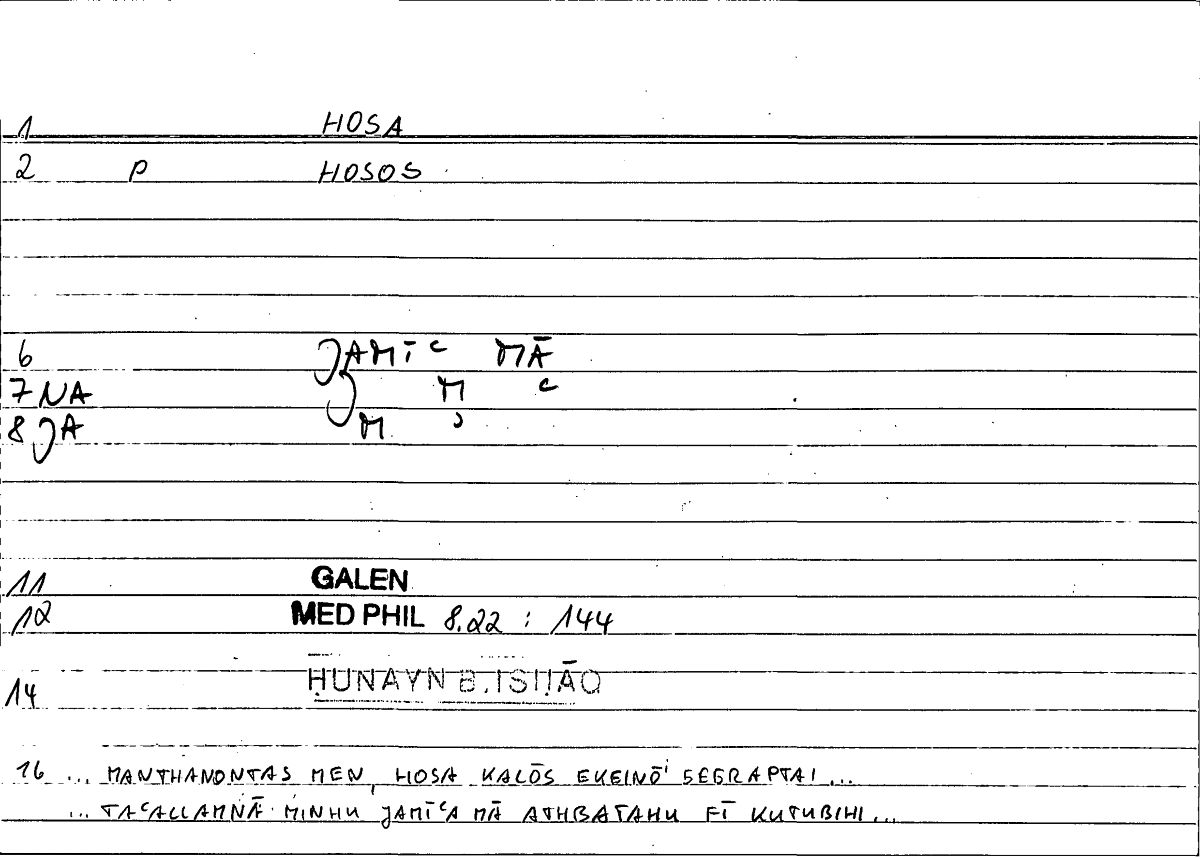 1 HOSA
2 P HOSOS
6 JAMĪʿ MĀ
7 NA J M ʿ
8 JA M ʾ
11 GALEN
12 MED PHIL 8.22 : 144
14 ḤUNAYN B. ISḤĀQ
16 ... MANTHANONTAS MEN, HOSA KALŌS EKEINŌⁱ GEGRAPTAI ...
... TAʿALLAMNĀ MINHU JAMĪʿA MĀ ATHBATAHU FĪ KUTUBIHI ...